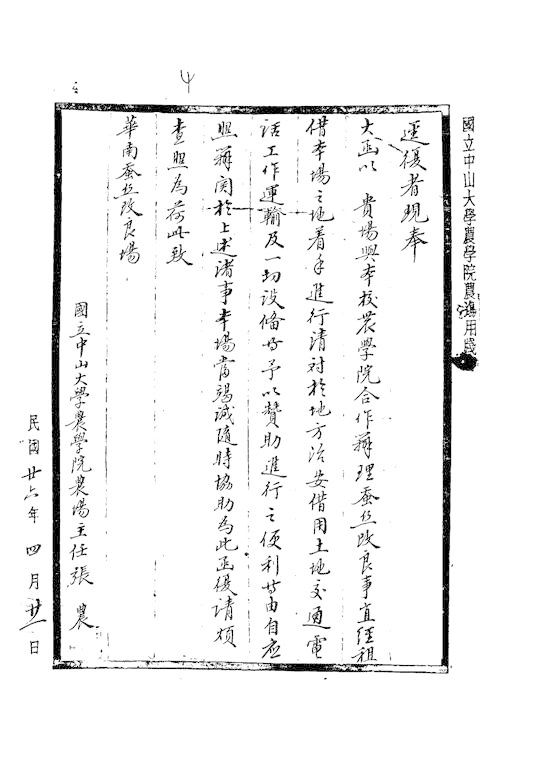 國立中山大學農學院農場用箋
逕復者現奉
大函以 貴場與本校農學院合作辦理蚕丝改良事宜經租
借本場之地着手進行請對於地方治安借用土地交通電
話工作運輸及一切設備等予以贊助進行之便利等由自應
照辦関於上述諸事本場當竭诚隨時協助為此函復請煩
查照為荷此致
華南蚕丝改良場
國立中山大學農學院農場主任張 農
民國廿六年 四月廿一日